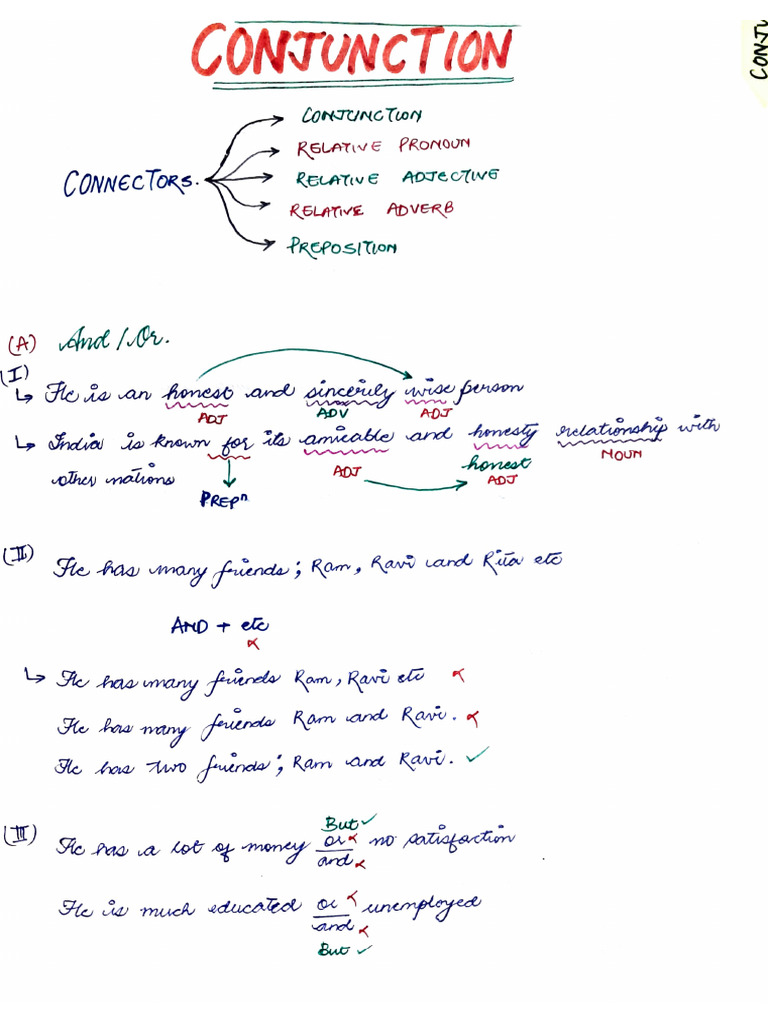 CONJUNCTION
CONJU
CONNECTORS.
CONJUNCTION
RELATIVE PRONOUN
RELATIVE ADJECTIVE
RELATIVE ADVERB
PREPOSITION
(A) And / Or.
(I)
↳ He is an honest and sincerily wise person
ADJ ADV ADJ
↳ India is known for its amicable and honesty relationship with
ADJ honest NOUN
other nations PREPⁿ ADJ
(II) He has many friends; Ram, Ravi and Rita etc
AND + etc
×
↳ He has many friends Ram, Ravi etc ×
He has many friends Ram and Ravi. ×
He has two friends; Ram and Ravi. ✓
But ✓
(III) He has a lot of money or × no satisfaction
and ×
He is much educated or × unemployed
and ×
But ✓